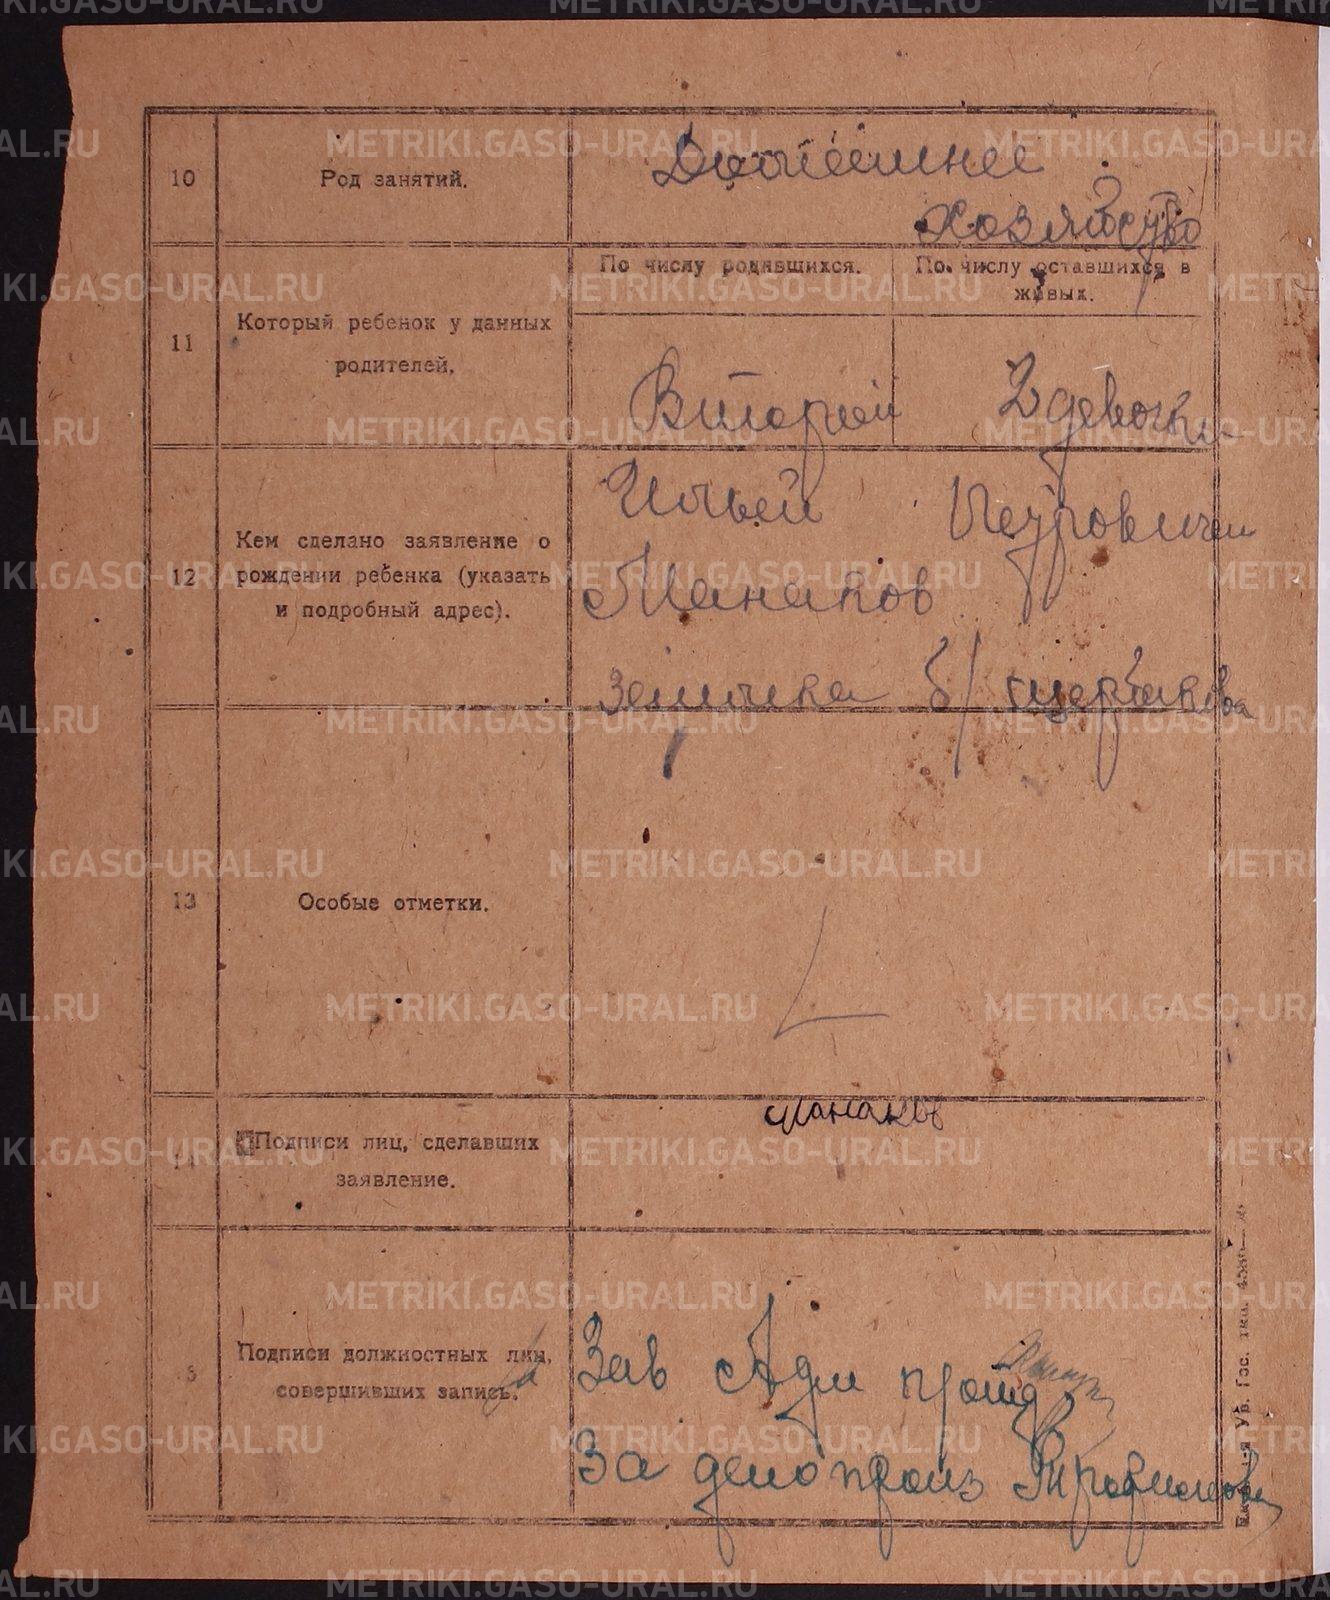 10
Род занятий.
Домашнее
хозяйство
11
Который ребенок у данных
родителей.
По числу родившихся.
По числу оставшихся в
живых.
Второй
2 девочки
12
Кем сделано заявление о
рождении ребенка (указать
и подробный адрес).
Ильей Петровичем
Манаков
землянка б/ щербакова
13
Особые отметки.
14
Подписи лиц, сделавших
заявление.
Манаков
Подписи должностных лиц,
совершивших запись.
Зав
За делопроиз Трофимова
METRIKI.GASO-URAL.RU